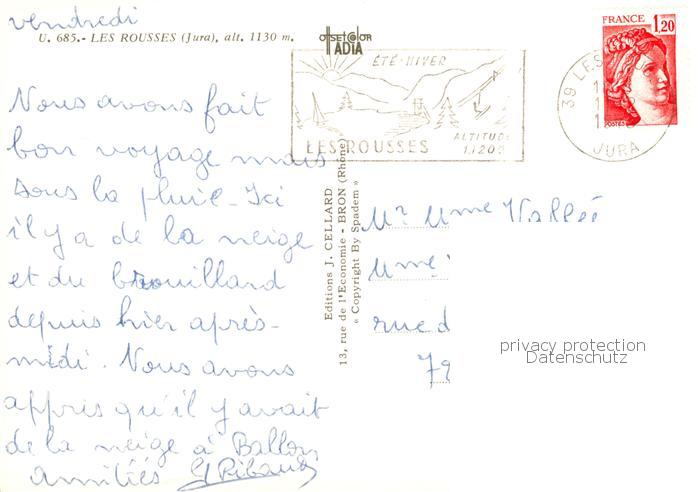 vendredi
U. 685.- LES ROUSSES (Jura), alt. 1130 m.
offset color
IADIA
ÉTÉ-HIVER
LES ROUSSES
ALTITUDE
1120
39 LES
JURA
FRANCE 1,20
POSTES
Nous avons fait
bon voyage mais
sous la pluie. Ici
il y a de la neige
et du brouillard
depuis hier après-
midi. Nous avons
appris qu'il y avait
de la neige à Ballon
amitiés G Ribaud
Editions J. CELLARD
13, rue de l'Economie - BRON (Rhône)
« Copyright By Spadem »
Mr Mme Vallée
rue d
79
privacy protection
Datenschutz